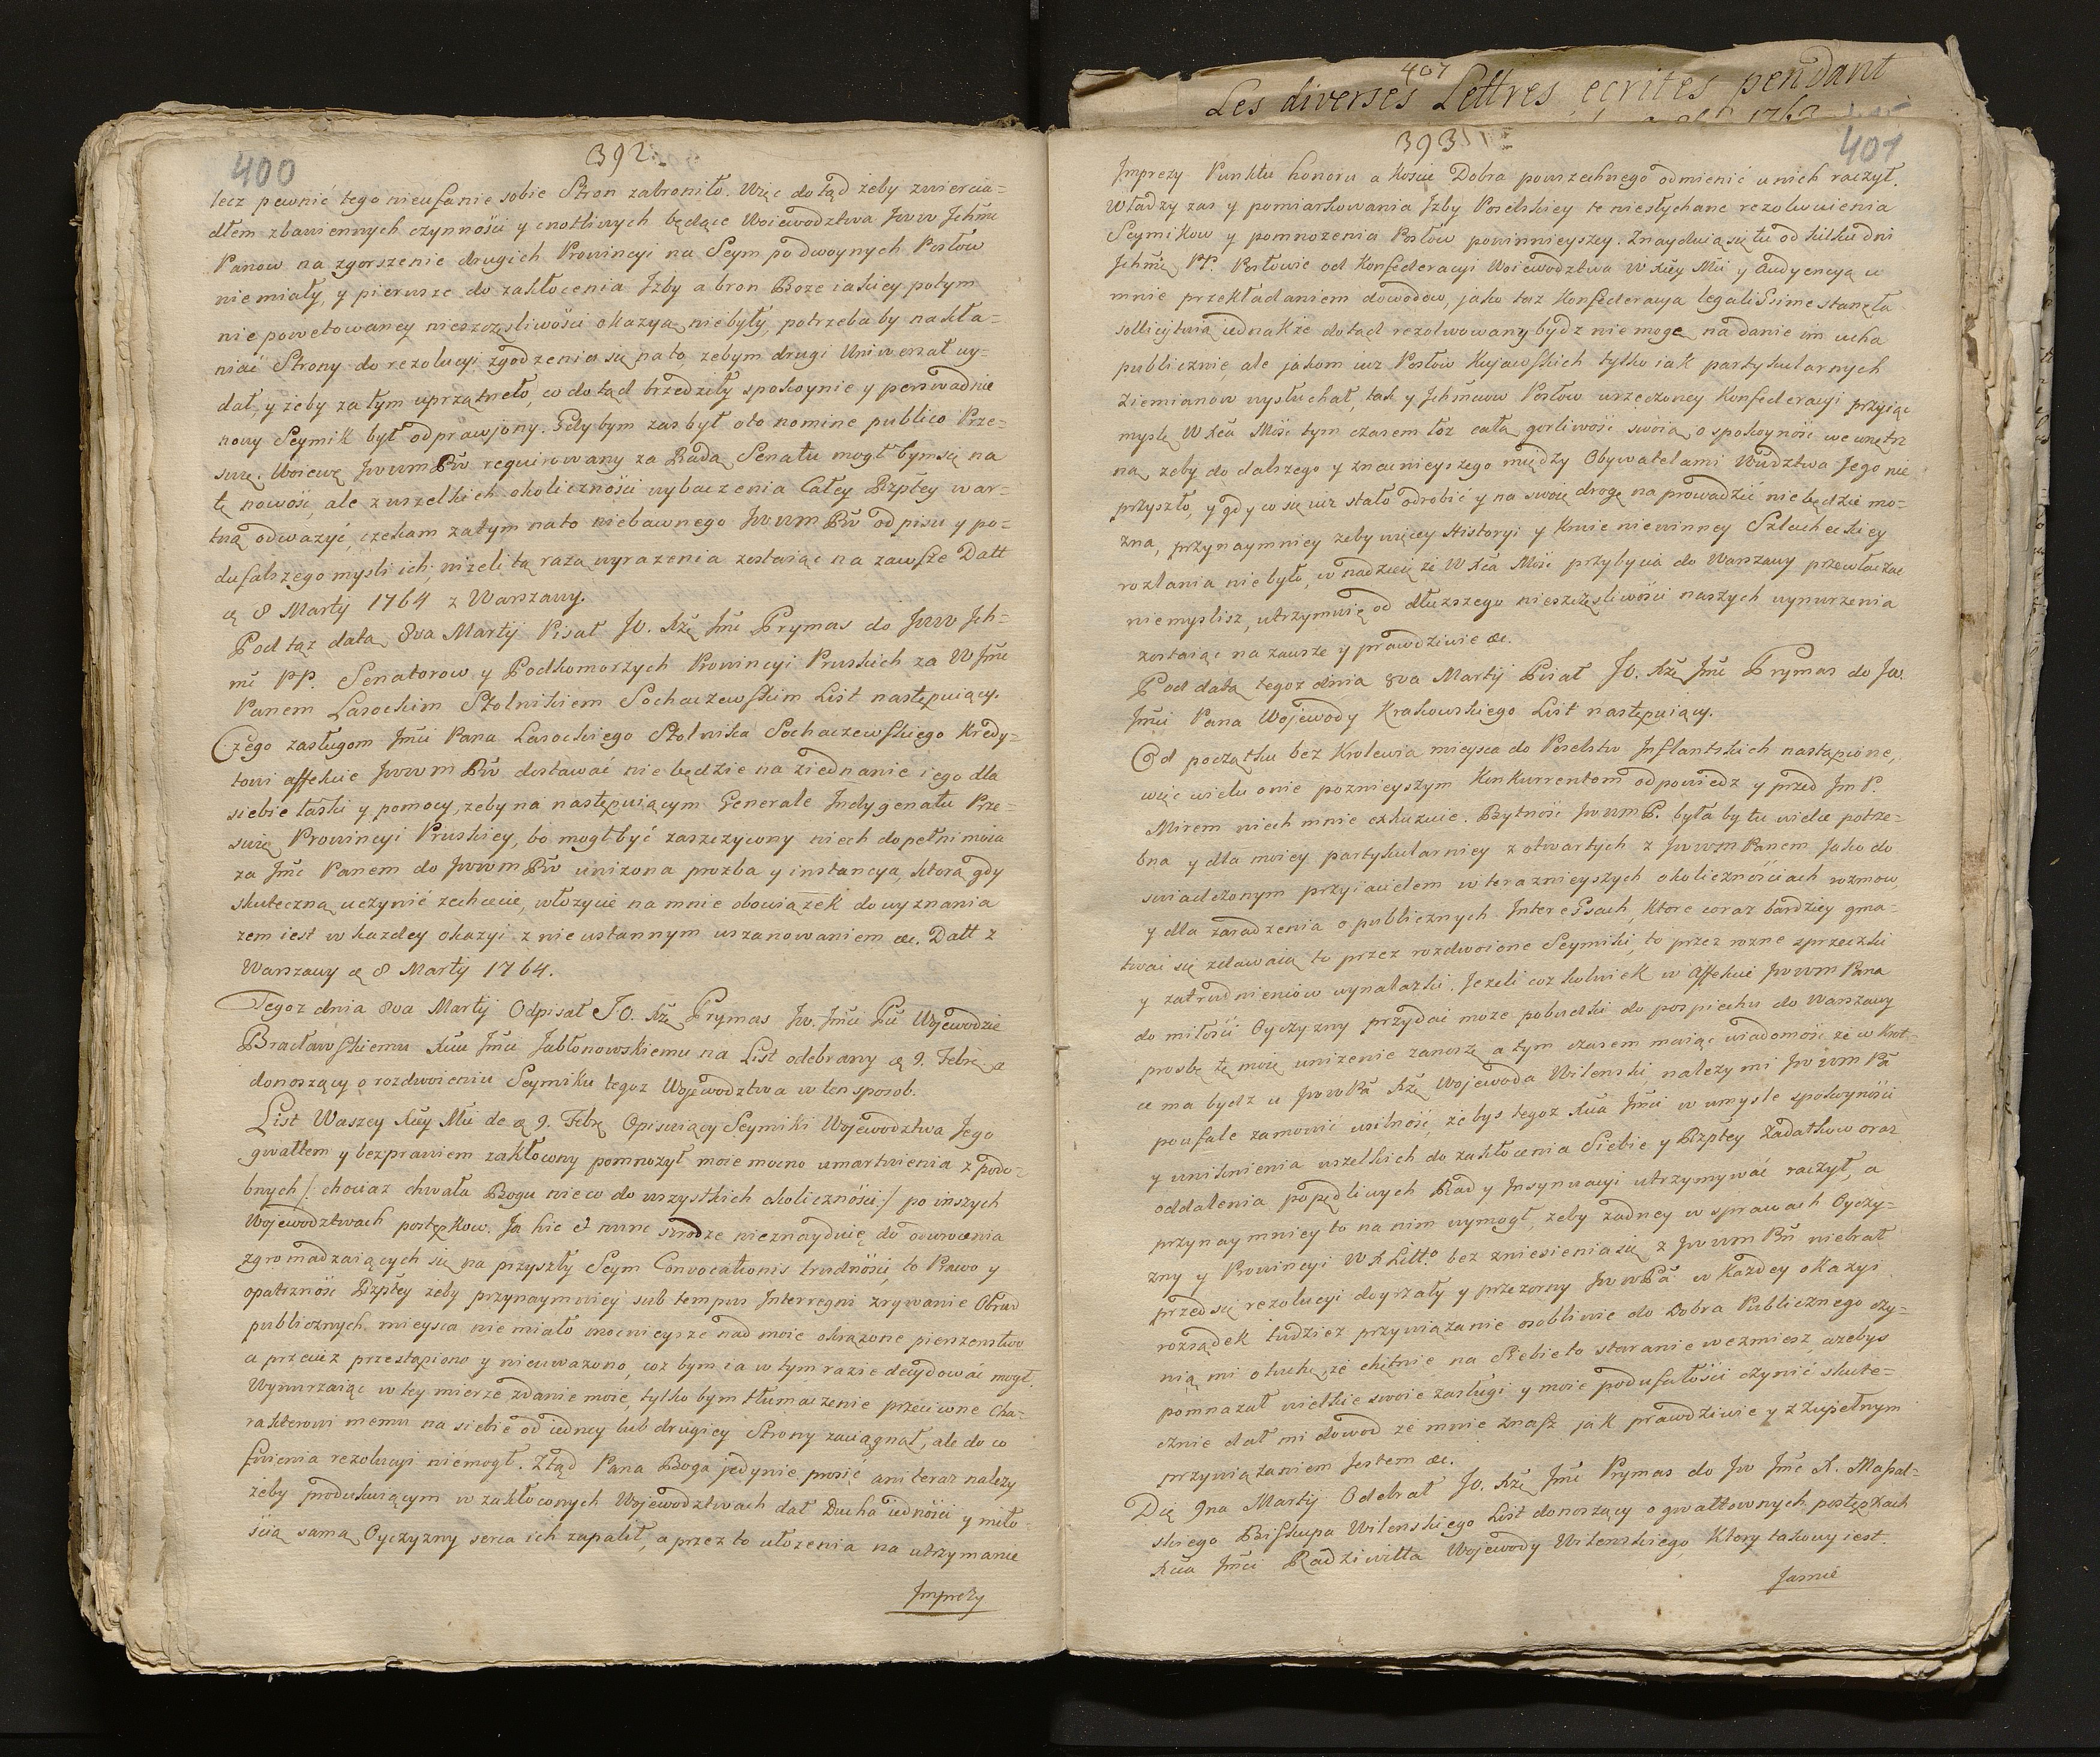 400
392.
lecz pewnić tego nieufanie sobie Stron zabroniło. Więc dotąd żeby zwiercia-
dłem zbawiennych czynności y cnotliwych będące Woiewodztwa Jww Jchmć
Panow na zgorszenie drugich Prowincyi na Seym podwoynych Posłow
nie miały, y pierwsze do zakłocenia Jzby a bron Boze iakiey potym
nie powetowaney nieszczęsliwości okazyą niebyły, potrzebaby nakła-
niać Strony do rezolucyi zgodzenia się na to zebym drugi Uniwersał wy-
dał, y żeby za tym uprzątneło, co dotąd brzedziły spokoynie y perswadnie
nowy Seymik był odprawiony. Gdybym zas był oto nomine publico Prze-
swię. Woiewę JwwmPw requirowany za Radą Senatu mogł bym się na
tę nowość, ale z wszelkich okoliczności wybaczenia Całey Rzpltey war-
tną odważyć, czekam zatym na to niebawnego JwwmPw odpisu y po-
dufalszego mysli ich, niżeli tą razą wyrazenia zostaiąc na zawsze Datt
ą 8 Martij 1764 z Warszawy.
Pod tąz datą 8va Martij Pisał Jo. Xżę Jmć Prymas do Jww Jch-
mć PP. Senatorow y Podkomorzych Prowincyi Pruskich za WJmć
Panem Lasockim Stolnikiem Sochaczewskim List następuiący.
Czego zasługom Jmći Pana Lasockiego Stolnika Sochaczewskiego Kredy-
towi affekcie JwwmPw dostawać nie będzie na ziednanie iego dla
siebie łaski y pomocy, zeby na następuiącym Generale Jndygenatu Prze-
swię Prowincyi Pruskiey, bo mogł być zaszczycony niech dopełni moia
za Jmć Panem do JwwmPw unizona prozba y instancya, ktorą gdy
skuteczną uczynić zechcecie, włożycie na mnie obowiązek do wyznania
zem iest w kazdey okazyi z nieustannym uszanowaniem &c. Datt z
Warszawy ą 8 Martij 1764.
Tegoz dnia 8va Martij Odpisał J.O. Xżę Prymas Jw. Jmći Pu Wojewodzie
Bracławskiemu Xciu Jmći Jabłonowskiemu na List odebrany ą 9. Febr. a
donoszący o rozdwoieniu Seymiku tegoz Wojewodztwa w ten sposob.
List Waszey Xcey Mci de ą 9. Febr. Opisuiący Seymiki Wojewodztwa Jego
gwałtem y bezprawiem zakłocony pomnozył moie mocno umartwienia z podo-
bnych /: chociaz chwała Bogu nie co do wszystkich okoliczności :/ po inszych
Wojewodztwach postępkow. Ja hic et nunc srodze nieznayduię do odwrocenia
zgromadzaiących się na przyszły Seym Convocationis trudności, to Prawo y
opatrzność Rzpltey żeby przynaymniey sub tempus Jnterregni zrywanie Obrad
publicznych mieysca nie miało mocnieysze nad moie okrązone pierszenstwo
a przeciez przestąpiono y nieuwazono, coz bym ia w tym razie decydować mogł.
Wynurzaiąc w tey mierze zdanie moie, tylko bym tłumaczenie przeciwne Cha-
rakterowi memu na siebie od iedney lub drugiey Strony zaciągnał, ale do co
fnienia rezolucyi niemogł. Ztąd Pana Boga jedynie prosić ani teraz nalezy
żeby produkuiącym w zakłoconych Wojewodztwach dał Ducha iedności y miło-
ścią samą Oyczyzny serca ich zapalił, a przez to ułozenia na utrzymanie
Jmprezy
407
Les diverses Lettres ecrites pendant
393
401
Jmprezy Punktu honoru a Koscie Dobra powszechnego odmienić u nich raczył.
Władzy zas y pomiarkowania Jzby Poselskiey te niesłychane rezolwuienia
Seymikow y pomnozenia Posłow powinnieyszey. Znayduią się tu od kilku dni
Jchmć PP. Posłowie od Konfederacyi Woiewodztwa W Xcey Mci y Audyencyą u
mnie przekładaniem dowodow, jako taz Konfederacya legalissime staneła
sollicytuią iednakże dotąd rezolwowany bydz nie mogę na danie im ucha
publicznie ale jakom iuz Posłow Kujawskich tylko iak partykularnych
Ziemianow wysłuchał, tak y Jchmciow Posłow urzeczoney Konfederacyi przyiąc
myslę W Xća Mość tym czasem łoz całą gorliwość swoią o spokoyność wewnętrz
ną, zeby do dalszego y znacznieyszego między Obywatelami Wwdztwa Jego nie
przyszło, y gdy co się iuz stało odrobić y na swoię drogę naprowadzić niebędzie mo-
zna, przynaymniey zeby więcey Historyi y Krwie niewinney Szlacheckiey
rozlania niebyło, w nadzieię że W Xća Mość przybycia do Warszawy przewłaczac
niemyslisz, utrzymuię od dłuzszego nieszczęsliwości naszych wynurzenia
zostaiąc na zawsze y prawdziwie &c.
Pod datą tegoz dnia 8va Martij Pisał Jo. Xżę Jmć Prymas do Jw.
Jmći Pana Wojewody Krakowskiego List następuiący.
Od początku bez Krolewia mieysca do Poselstw Jnflantskich nastąpione,
więc wielu o nie poznieyszym Konkurrentom odpowiedz y przed Jm P.
Mirem niech mnie exkuzuie. Bytność JwwmP. byłaby tu wielce potrze-
bna y dla moiey partykularniey z otwartych z Jwwm Panem Jako do
swiadczonym przyiacielem w teraznieyszych okolicznościach rozmow,
y dla zaradzenia o publicznych Jnteressach, Ktore coraz bardziey gma-
twać się zdawaią to przez rozdwoione Seymiki, to przez rozne sprzeczki
y zatrudnieniow wynalazki. Jezeli coz kolwiek w Affekcie Jwwm Pana
do miłości Oyczyzny przydać może pobudki do pospiechu do Warszawy
prosbę tę moię unizenie zanoszę a tym czasem maiąc wiadomość ze w krot-
ce ma bydz u JwwPa Xżę Wojewoda Wilenski, nalezy mi JwwmPa
poufale zamowić usilność, żebys tegoz Xcia Jmći w umysle spokoyności
y uniknienia wszelkich do zakłocenia Siebie y Rzpltey Zadatkow oraz
oddalenia popędliwych Rad y Jnsynuacyi utrzymywać raczył, a
przynaymniey to na nim wymogł, żeby zadney w sprawach Oyczy-
zny y Prowincyi W X Litto. bez zniesienia się z Jwwm Pu niebrał
przed się rezolucyi doyrzały y przezorny JwwPa w Kazdey okazyi
rozsądek tudziez przywiązanie osobliwie do Dobra Publicznego czy-
nią mi otuchę, że chętnie na Siebie to staranie wezmiesz, azebys
pomnazał wielkie swoie zasługi y moie podufałości czynić skute-
cznie dał mi dowod że mnie znasz jak prawdziwie y z zupełnym
przywiązaniem Jestem &c.
Dcą 9na Martij Odebrał Jo. Xżę Jmć Prymas do Jw Jmć X. Massal-
skiego Biskupa Wilenskiego List donoszący o gwałtownych postępkach
Xcia Jmći Radziwiłła Wojewody Wilenskiego Ktory takowy iest.
Jasnie